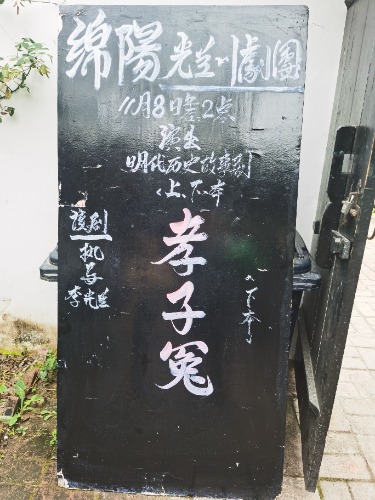 绵陽光兰川劇團
11月8日2点
演出
明代历史故事剧
(上、下本)
孝子冤
执导
李光兰
(下本)